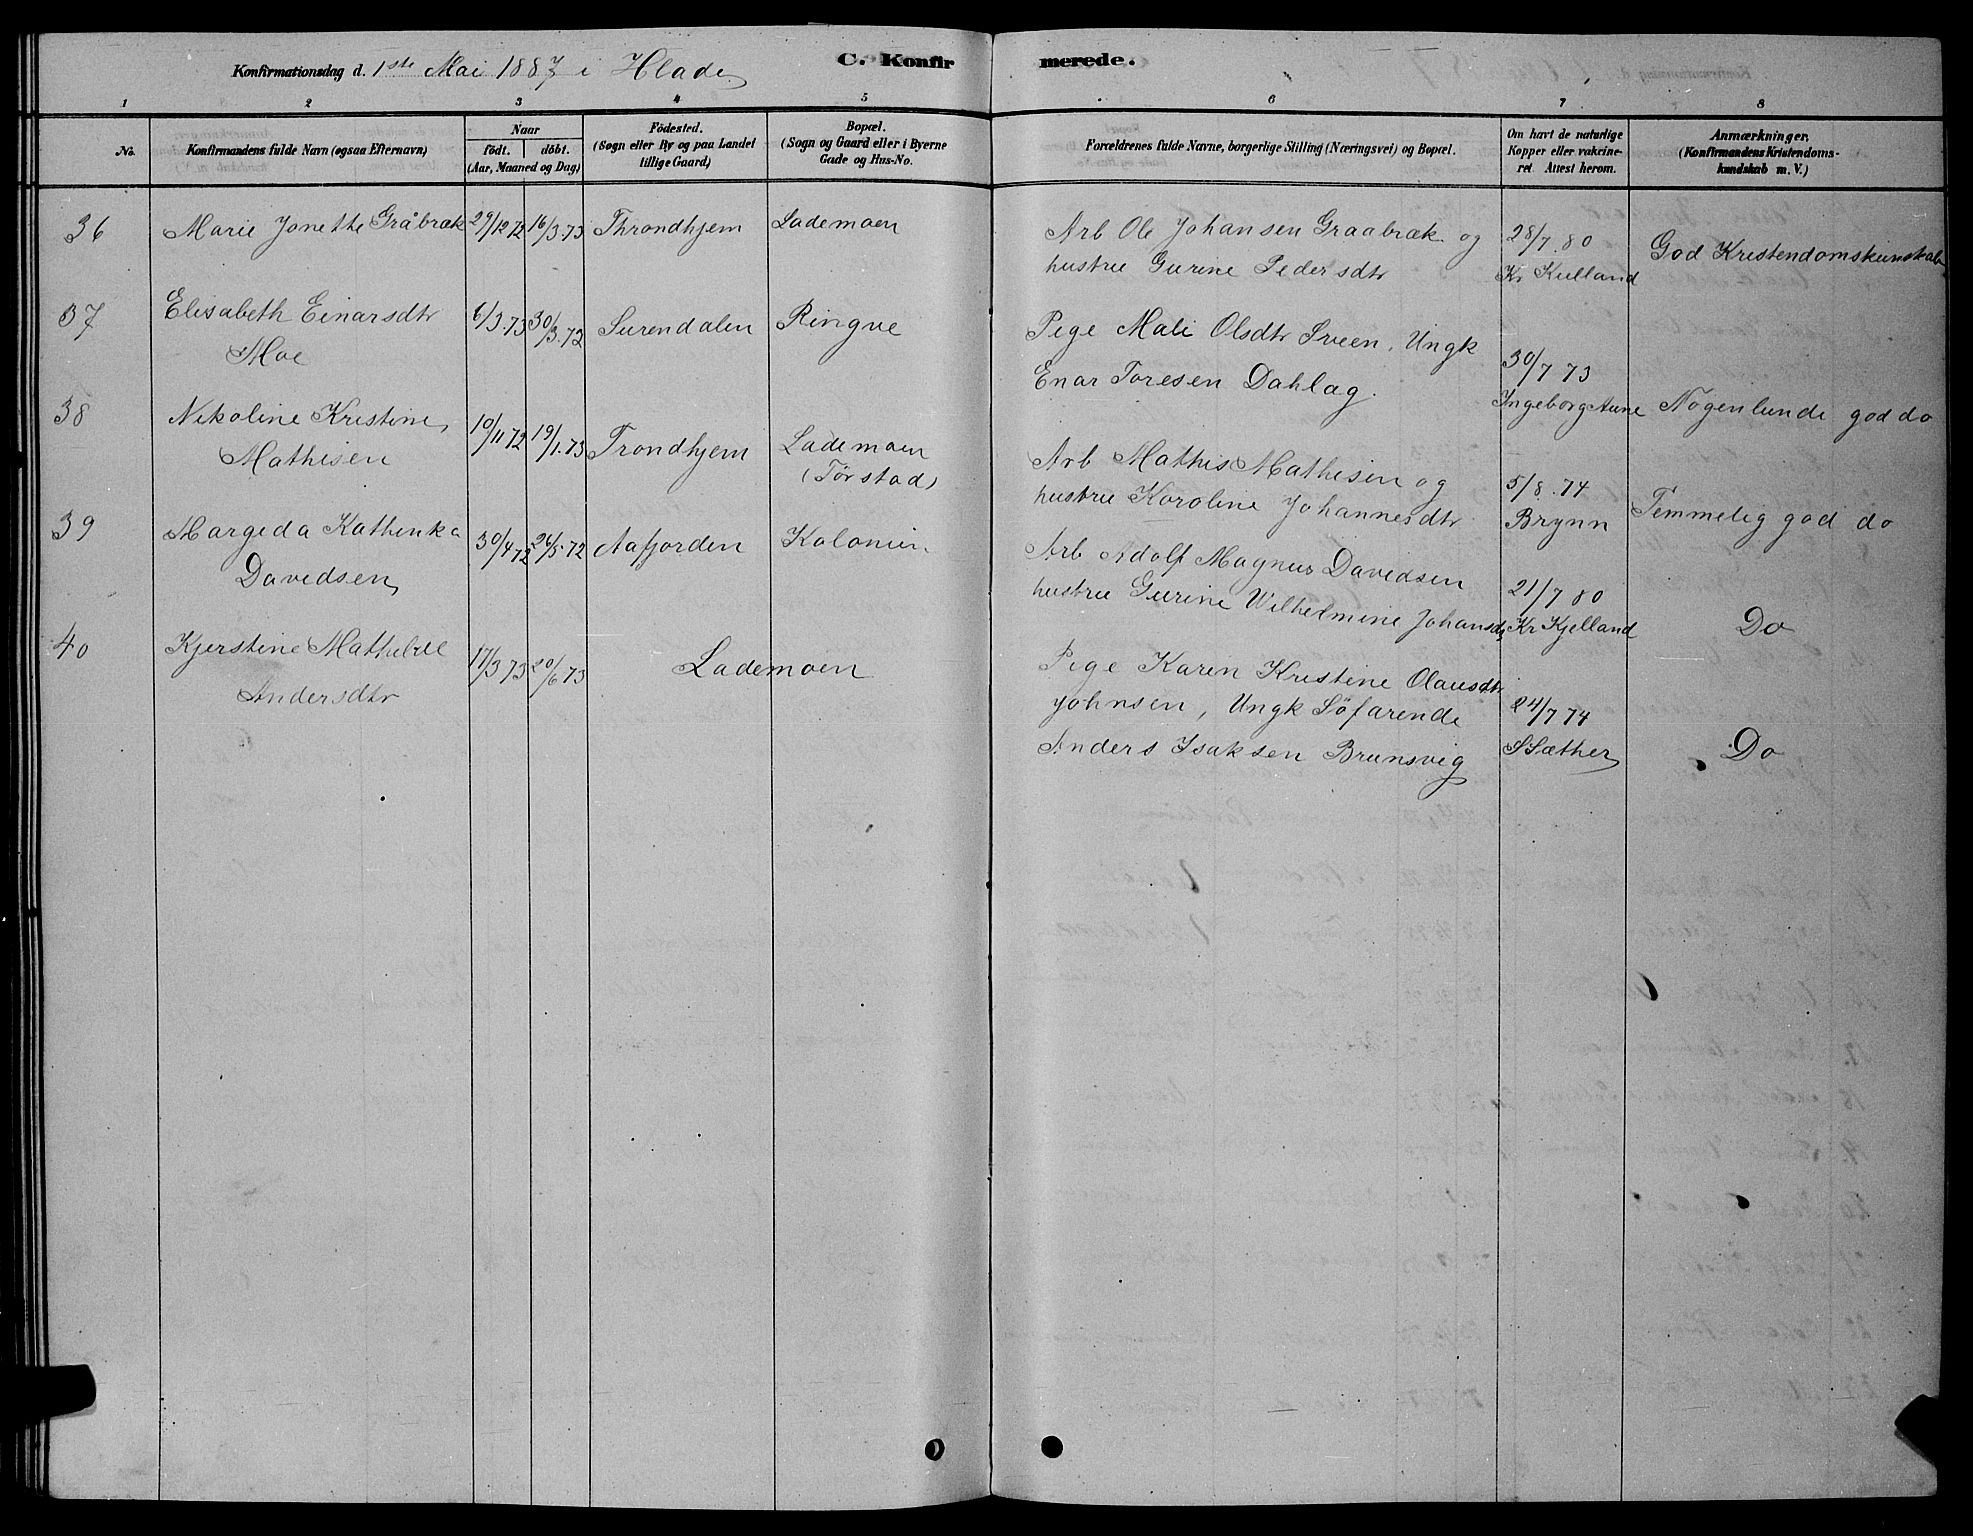 Konfirmationsdag d. 1ste Mai 1887 i Hlade
C. Konfirmerede.
1 2 3 4 5 6 7 8
No.
Konfirmandens fulde Navn (ogsaa Efternavn)
Naar
födt. döbt.
(Aar, Maaned og Dag)
Födested.
(Sogn eller By og paa Landet
tillige Gaard)
Bopæl.
(Sogn og Gaard eller i Byerne
Gade og Hus-No.
Forældrenes fulde Navne, borgerlige Stilling (Næringsvei) og Bopæl.
Om havt de naturlige
Kopper eller vakcine-
ret Attest herom.
Anmærkninger.
(Konfirmandens Kristendoms-
kundskab m. V.)
36 Marie Jonette Gråbræk 29/12 72 16/3.73 Throndhjem Lademoen Arb Ole Johansen Graabræk og 28/7.80 God Kristendomskunskab
hustru Gurine Pedersdtr Kr Kulland
37 Elisabeth Einarsdtr 6/3.73 30/3.72 Surendalen Ringve Pige Mali Olsdtr Sveen, Ungk 30/7 73
Moe Enar Toresen Dahlag. Ingeborg Aune Nogenlunde god do
38 Nikoline Kristine 10/11 72 19/1.73 Trondhjem Lademoen Arb Mathis Mathisen og 5/8.74
Mathisen (Törstad) hustru Karoline Johannesdtr Brynn Temmelig god do
39 Margeda Kathinka 30/4 72 26/5.72 Aafjorden Kolonien Arb Adolf Magnus Davidsen 21/7 80
Davidsen hustru Gurine Wilhelmine Johansd Kr Kjelland Do
40 Kjerstine Mathilde 17/3 73 20/6 73 Lademoen Pige Karen Kristine Olausdtr
Andersdtr Johnsen, Ungk Söfarende 24/7 74
Anders Isaksen Brunsvig S Sæther Do